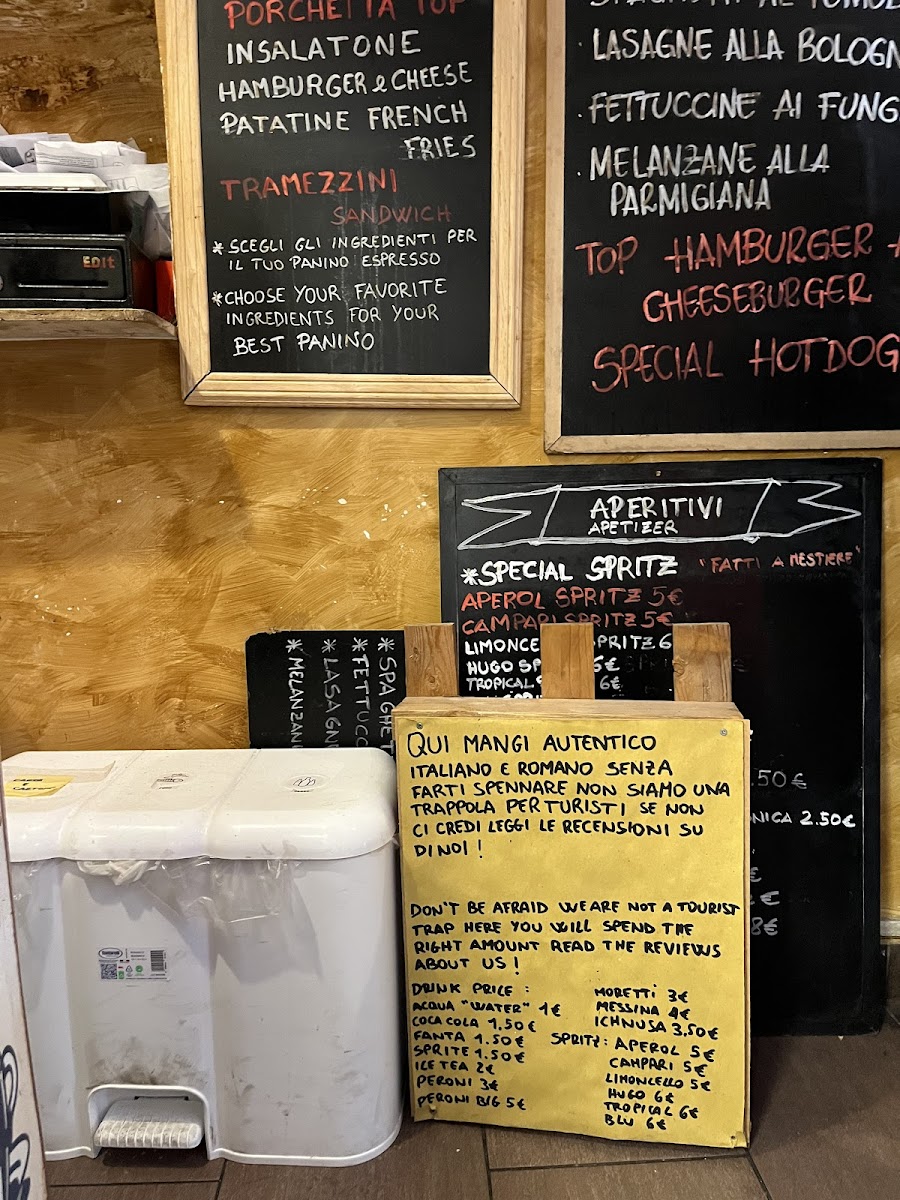 PORCHETTA TOP
INSALATONE
HAMBURGER & CHEESE
PATATINE FRENCH
FRIES
TRAMEZZINI
SANDWICH
* SCEGLI GLI INGREDIENTI PER
IL TUO PANINO ESPRESSO
* CHOOSE YOUR FAVORITE
INGREDIENTS FOR YOUR
BEST PANINO
Edit
SPAGHETTI AL POMOD
· LASAGNE ALLA BOLOGN
· FETTUCCINE AI FUNG
· MELANZANE ALLA
PARMIGIANA
TOP HAMBURGER
CHEESEBURGER
SPECIAL HOTDOG
APERITIVI
APETIZER
*SPECIAL SPRITZ "FATTI A MESTIERE"
APEROL SPRITZ 5€
CAMPARI SPRITZ 5€
LIMONCE SPRITZ 6
HUGO SP 6€
TROPICAL 6€
.50€
NICA 2.50€
€
€
8€
*SPAGHET
*FETTUCC
*LASAGN
*MELANZAN
QUI MANGI AUTENTICO
ITALIANO E ROMANO SENZA
FARTI SPENNARE NON SIAMO UNA
TRAPPOLA PER TURISTI SE NON
CI CREDI LEGGI LE RECENSIONI SU
DI NOI !
DON'T BE AFRAID WE ARE NOT A TOURIST
TRAP HERE YOU WILL SPEND THE
RIGHT AMOUNT READ THE REVIEWS
ABOUT US !
DRINK PRICE :
ACQUA "WATER" 1€
COCA COLA 1,50€
FANTA 1.50€
SPRITE 1.50€
ICE TEA 2€
PERONI 3€
PERONI BIG 5€
MORETTI 3€
MESSINA 4€
ICHNUSA 3,50€
SPRITZ: APEROL 5€
CAMPARI 5€
LIMONCELLO 5€
HUGO 6€
TROPICAL 6€
BLU 6€